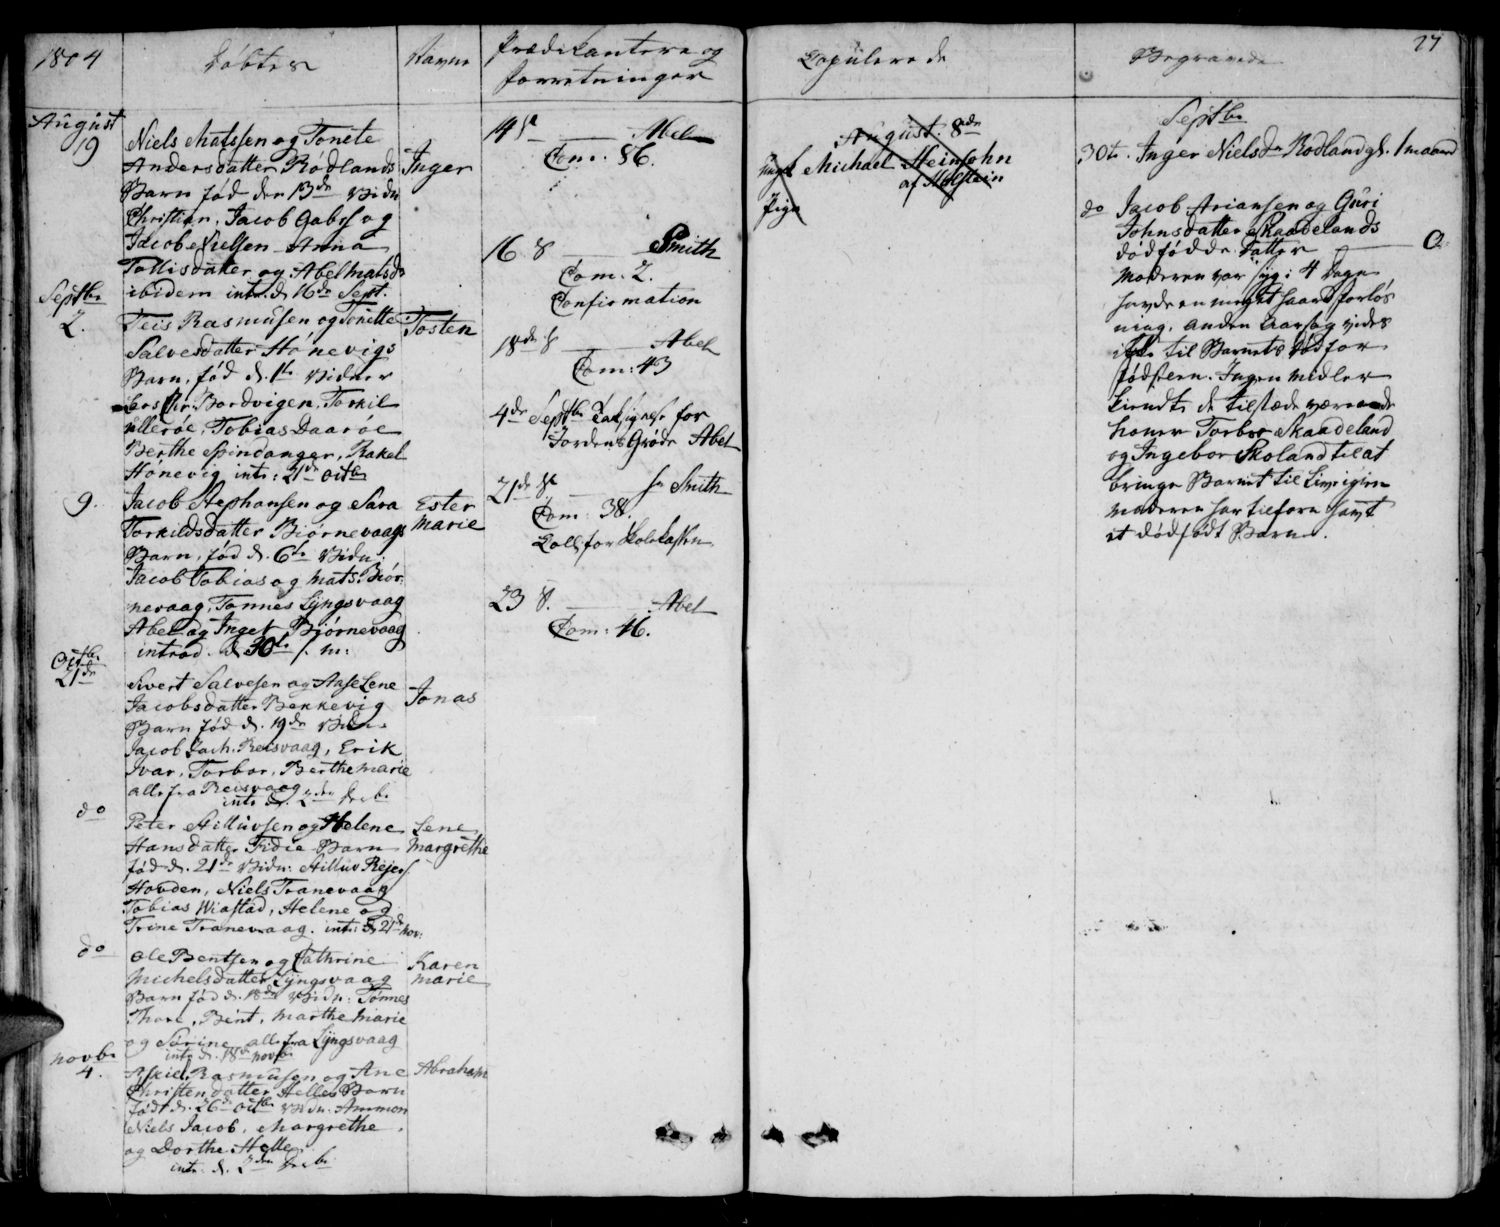 1804
Døbte
Navne
Prædikantere og
forretninger
Copulerede
Begravede
27
August
19
Niels Matssen og Tonete
Andersdatter Rødlands
Barn fød den 13de Vidn
Christian, Jacob Gabrs og
Jacob Nielsen Anna
Tollisdatter og Abel Matsd
ibidem intr. d. 16de Sept.
Inger
Septbr
2.
Teis Rasmusen og Tonette
Salvesdatter Hønevigs
Barn, fød d. 1te Vidner
Bordvigen, Torkil
Ulleröe, Tobias Daaröe
Berthe Spindanger, Rakel
Hønevig intr: 21de octbr
Tosten
9.
Jacob Stephansen og Sara
Torkildsdatter Biørnevaags
Barn, fød d. 6te Vidn:
Jacob Tobias og Mats Biør
nevaag, Tønnes Lyngsvaag
Abel og Inget Biørnevaag
introd. d. 30te s. m:
Ester
Marie
Octbr
21de
Sivert Salvesen og Aase Lene
Jacobsdatter Bekkevig
Barn fød d. 19de Vidn
Jacob Jach. Reisvaag, Erik
Ivar, Torbor, Berthe Marie
alle fra Reisvaag
intr d. 2den
Jonas
do
Peter Stilluvsen og Helene
Hansdatter Fidie Barn
fød d. 21de Vidn: Stilluv Rejers
Hovden, Niels Tranevaag
Tobias Wiastad, Helene og
Trine Tranevaag. intr: d. 21de nov:
Lene
Margrethe
do
Ole Bentsen og Cathrine
Michelsdatter Lyngsvaag
Barn fød d. 18de Vidn: Tønnes
Thore, Bent, Marthe Marie
og Serine alle fra Lyngsvaag
intr d. 18de novbr
Karen
Marie
Novbr
4.
Eskil Rasmusen og Ane
Christensdatter Helles Barn
født d. 26de octbr Vidn. Ammon
Niels Jacob, Margrethe
og Dorthe Helle
intr. d. 2den
Abraham
14 S. Abel
Com: 86.
16 S. Smith
Com: 2.
Confirmation
18de S. Abel
Com: 43
4de Septbr Taksigelse for
Jordens Grøde Abel
21de S. Hr Smith
Com: 38.
Coll. for Skolekassen
23 S. Abel
Com: 46.
August. 8de
Ungk. Michael Heinsohn
af Holstein
Pige
Septbr
30te. Inger Nielsdr Rødland gl. 1 maaned
do Jacob Ariansen og Guri
Johnsdatter Skaadelands
dødfødde Datter 0
Moderen var syg i 4 Dage
havde en meget haard forløs
ning, anden Aarsag vides
ikke til Barnets død før
fødselen. Ingen midler
kiendte de tilstæde værende
koner Torbor Skaadeland
og Ingebor Skoland til at
bringe Barnet til Live igien
Moderen har tilforn havt
et dødfødt Barn.